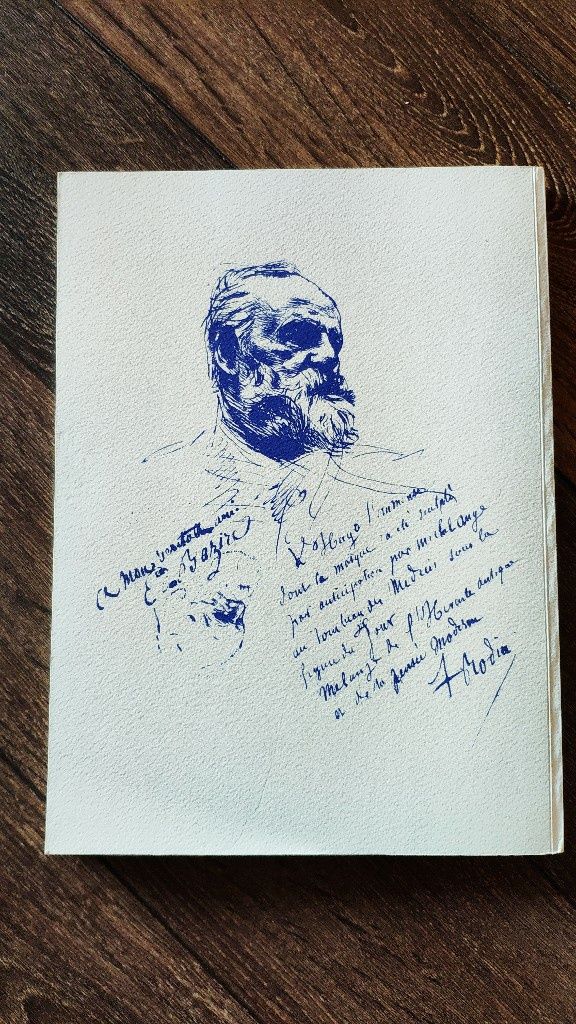 a mon
Ed Bazire
V. Hugo l'immense
dont le masque a été sculpté
par anticipation par Michel Ange
au tombeau des Medicis sous la
figure du Jour
Melange de l'Hercule antique
et de la pensée moderne
A Rodin